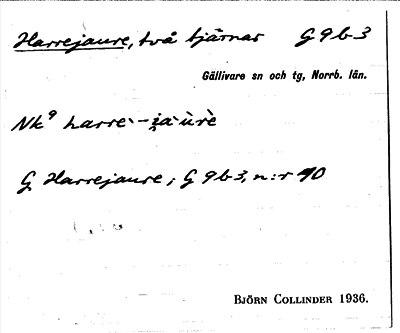 Harrejaure, två tjärnar G 9 b 3
Gällivare sn och tg, Norrb. län.
Nk⁹ harre`-i̯a`ùrè
G Harrejaure; G 9 b 3, n:r 90
BJÖRN COLLINDER 1936.